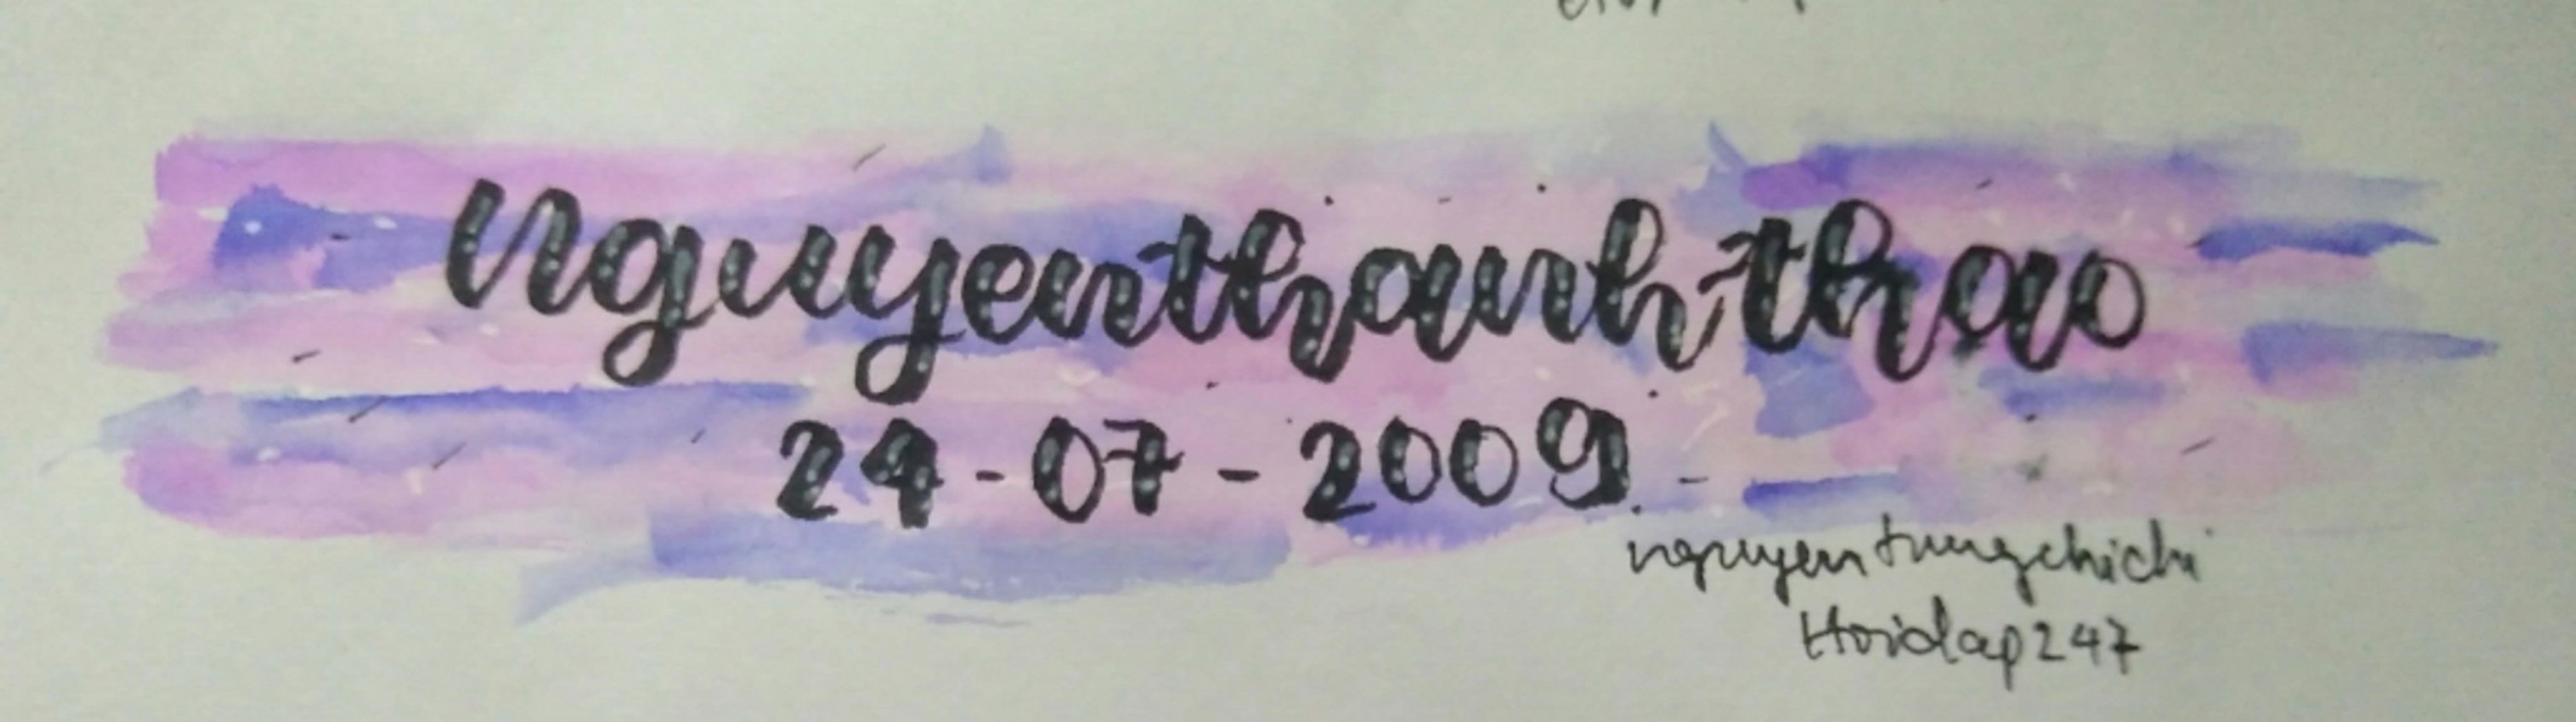 nguyenthanhthao
24-07-2009
nguyentungchichi
Hoidap247